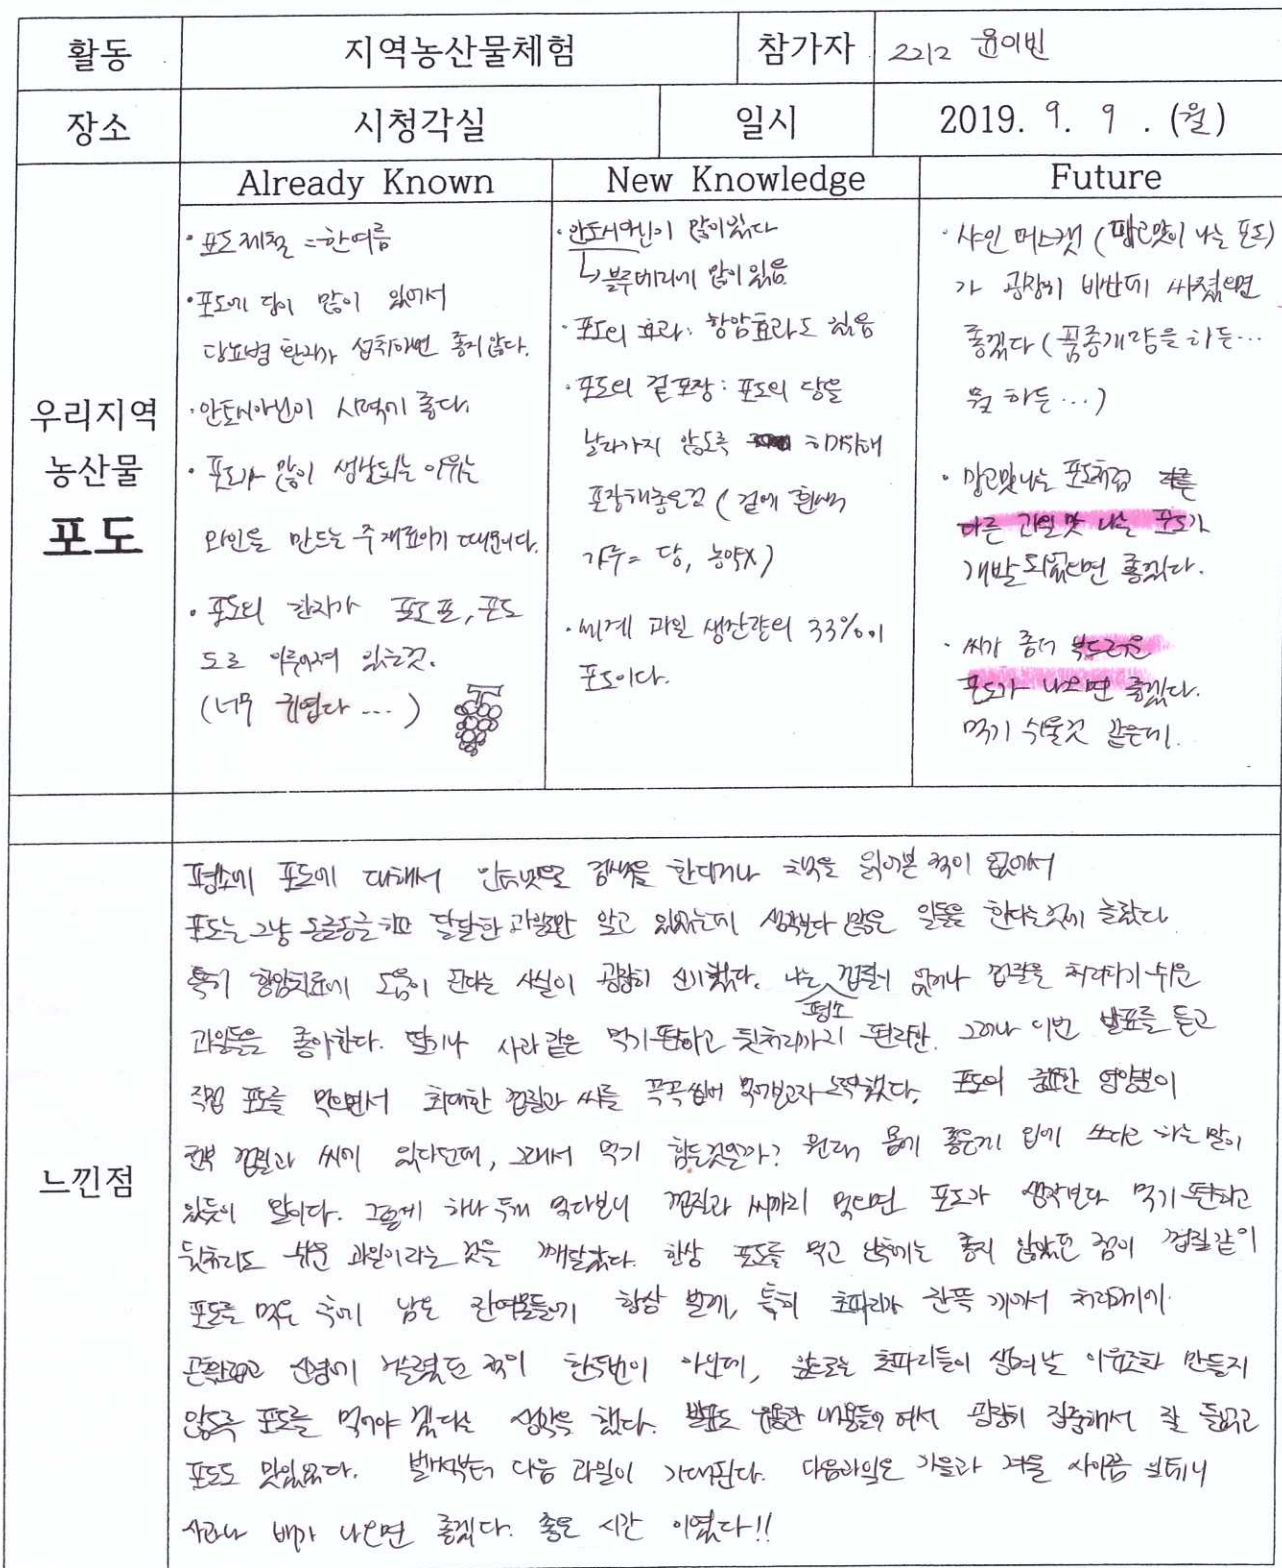 활동 지역농산물체험 참가자 2212 윤이빈
장소 시청각실 일시 2019. 9. 9. (월)
우리지역
농산물
포도
Already Known
· 포도제철 = 한여름
· 포도에 당이 많이 있어서
당뇨병 환자가 섭취하면 좋지 않다.
· 안토시아닌이 시력에 좋다.
· 포도가 많이 생산되는 이유는
와인을 만드는 주 재료이기 때문이다.
· 포도의 한자가 포도 포, 포도
도로 이루어져 있는것.
(너무 귀엽다 ...)
New Knowledge
· 안토시아닌이 많이있다
↳ 블루베리에 많이 있음
· 포도의 효과: 항암효과도 있음
· 포도의 겉포장: 포도의 당을
날라가지 않도록 하기위해
포장해놓은것 (겉에 흰색
가루 = 당, 농약X)
· 세계 과일 생산량의 33%이
포도이다.
Future
· 샤인 머스캣 (망고맛이 나는 포도)
가 굉장히 비싼데 싸졌으면
좋겠다 (품종개량을 하든...
뭘 하든...)
· 망고맛나는 포도처럼
다른 과일 맛 나는 포도가
개발 되었으면 좋겠다.
· 씨가 좀더 부드러운
포도가 나오면 좋겠다.
먹기 쉬울것 같은데.
느낀점
평소에 포도에 대해서 인터넷으로 검색을 한다거나 책을 읽어본 적이 없어서
포도는 그냥 동글동글하고 달달한 과일로만 알고 있었는데 생각보다 많은 일들을 한다는것에 놀랐다
특히 항암치료에 도움이 된다는 사실이 굉장히 신기했다. 나는 평소 껍질이 없거나 껍질을 처리하기 쉬운
과일들을 좋아한다. 딸기나 사과 같은 먹기 편하고 뒷처리까지 편리한. 그러나 이번 발표를 듣고
직접 포도를 먹으면서 최대한 껍질과 씨를 꼭꼭씹어 먹어보고자 노력했다. 포도의 중요한 영양분이
전부 껍질과 씨에 있다던데, 그래서 먹기 힘든것일까? 원래 몸에 좋은게 입에 쓰다고 하는 말이
있듯이 말이다. 그렇게 하나 두개 먹다보니 껍질과 씨까지 먹으면 포도가 생각보다 먹기 편하고
뒷처리도 쉬운 과일이라는 것을 깨달았다. 항상 포도를 먹고 난후에는 좋지 않았던 점이 껍질같이
포도를 먹은 후에 남은 잔여물들에 항상 벌레, 특히 초파리가 잔뜩 껴서 처리하기에
곤란하고 신경이 거슬렸던 적이 한두번이 아닌데, 앞으로는 초파리들이 생겨날 이유조차 만들지
않도록 포도를 먹어야 겠다는 생각을 했다. 발표도 유용한 내용들이어서 굉장히 집중해서 잘 들었고
포도도 맛있었다. 벌써부터 다음 과일이 기대된다. 다음과일은 가을과 겨울 사이쯤 일테니
사과나 배가 나오면 좋겠다. 좋은 시간 이였다!!